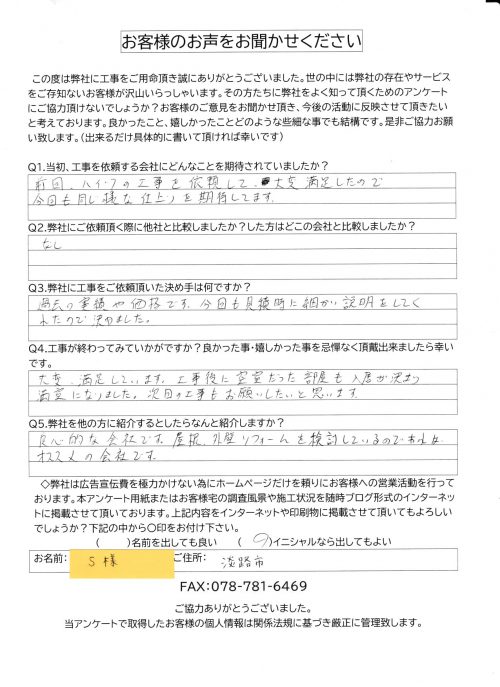 お客様のお声をお聞かせください
この度は弊社に工事をご用命頂き誠にありがとうございました。世の中には弊社の存在やサービス
をご存知ないお客様が沢山いらっしゃいます。その方たちに弊社をよく知って頂くためのアンケート
にご協力頂けないでしょうか?お客様のご意見をお聞かせ頂き、今後の活動に反映させて頂きたい
と考えております。良かったこと、嬉しかったことどのような些細な事でも結構です。是非ご協力お願
い致します。（出来るだけ具体的に書いて頂ければ幸いです）
Q1.当初、工事を依頼する会社にどんなことを期待されていましたか?
前回、ハイツの工事を依頼して、大変満足したので
今回も同じ様な仕上りを期待してます。
Q2.弊社にご依頼頂く際に他社と比較しましたか?した方はどこの会社と比較しましたか?
なし
Q3.弊社に工事をご依頼頂いた決め手は何ですか?
過去の実績や価格です。今回も見積時に細かい説明をしてく
れたので決めました。
Q4.工事が終わってみていかがですか?良かった事・嬉しかった事を忌憚なく頂戴出来ましたら幸い
です。
大変、満足しています。工事後に空室だった部屋も入居が決まり
満室になりました。次回の工事もお願いしたいと思います
Q5.弊社を他の方に紹介するとしたらなんと紹介しますか?
良心的な会社です。屋根、外壁リフォームを検討しているのであれば
オススメの会社です。
◇弊社は広告宣伝費を極力かけない為にホームページだけを頼りにお客様への営業活動を行って
おります。本アンケート用紙またはお客様宅の調査風景や施工状況を随時ブログ形式のインターネッ
トに掲載させて頂いております。上記内容をインターネットや印刷物に掲載させて頂いてもよろしい
でしょうか?下記の中から〇印をお付け下さい。
（　　）名前を出しても良い　（ 〇 ）イニシャルなら出してもよい
お名前： S様 ご住所： 淡路市
FAX：078-781-6469
ご協力ありがとうございました。
当アンケートで取得したお客様の個人情報は関係法規に基づき厳正に管理致します。